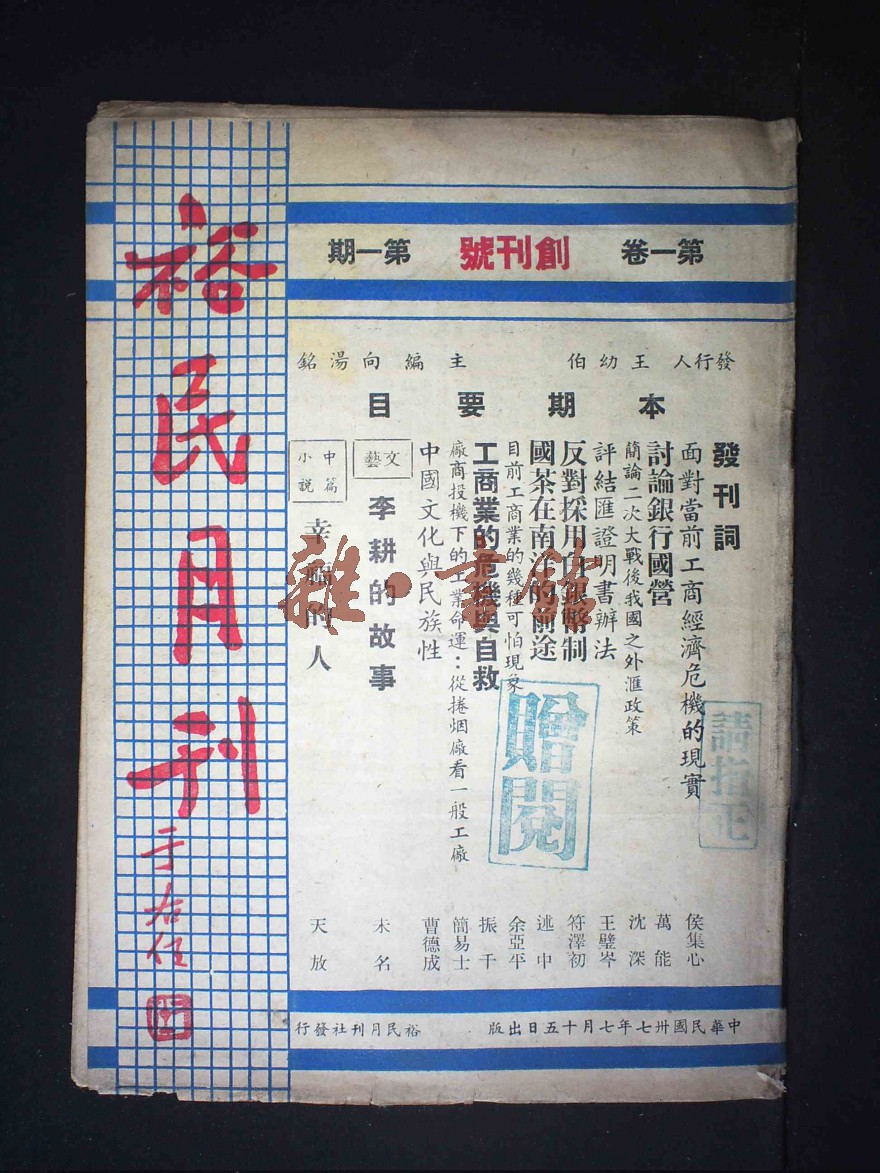 裕民月刊
于右任
第一卷 創刊號 第一期
發行人 王幼伯 主編 向湯銘
本期要目
發刊詞
面對當前工商經濟危機的現實 侯集心
討論銀行國營 萬能
簡論二次大戰後我國之外滙政策 沈深
評結匯證明書辦法 王璧岑
反對採用白銀幣制 符澤初
國茶在南洋的前途 述中
目前工商業的幾種可怕現象 余亞平
工商業的危機與自救 振千
廠商投機下的工業命運：從捲烟廠看一般工廠 簡易士
中國文化與民族性 曹德成
文藝 李耕的故事 未名
中篇小說 幸福的人 天放
中華民國卅七年七月十五日出版
裕民月刊社發行
贈閱
請指正
雜·書館